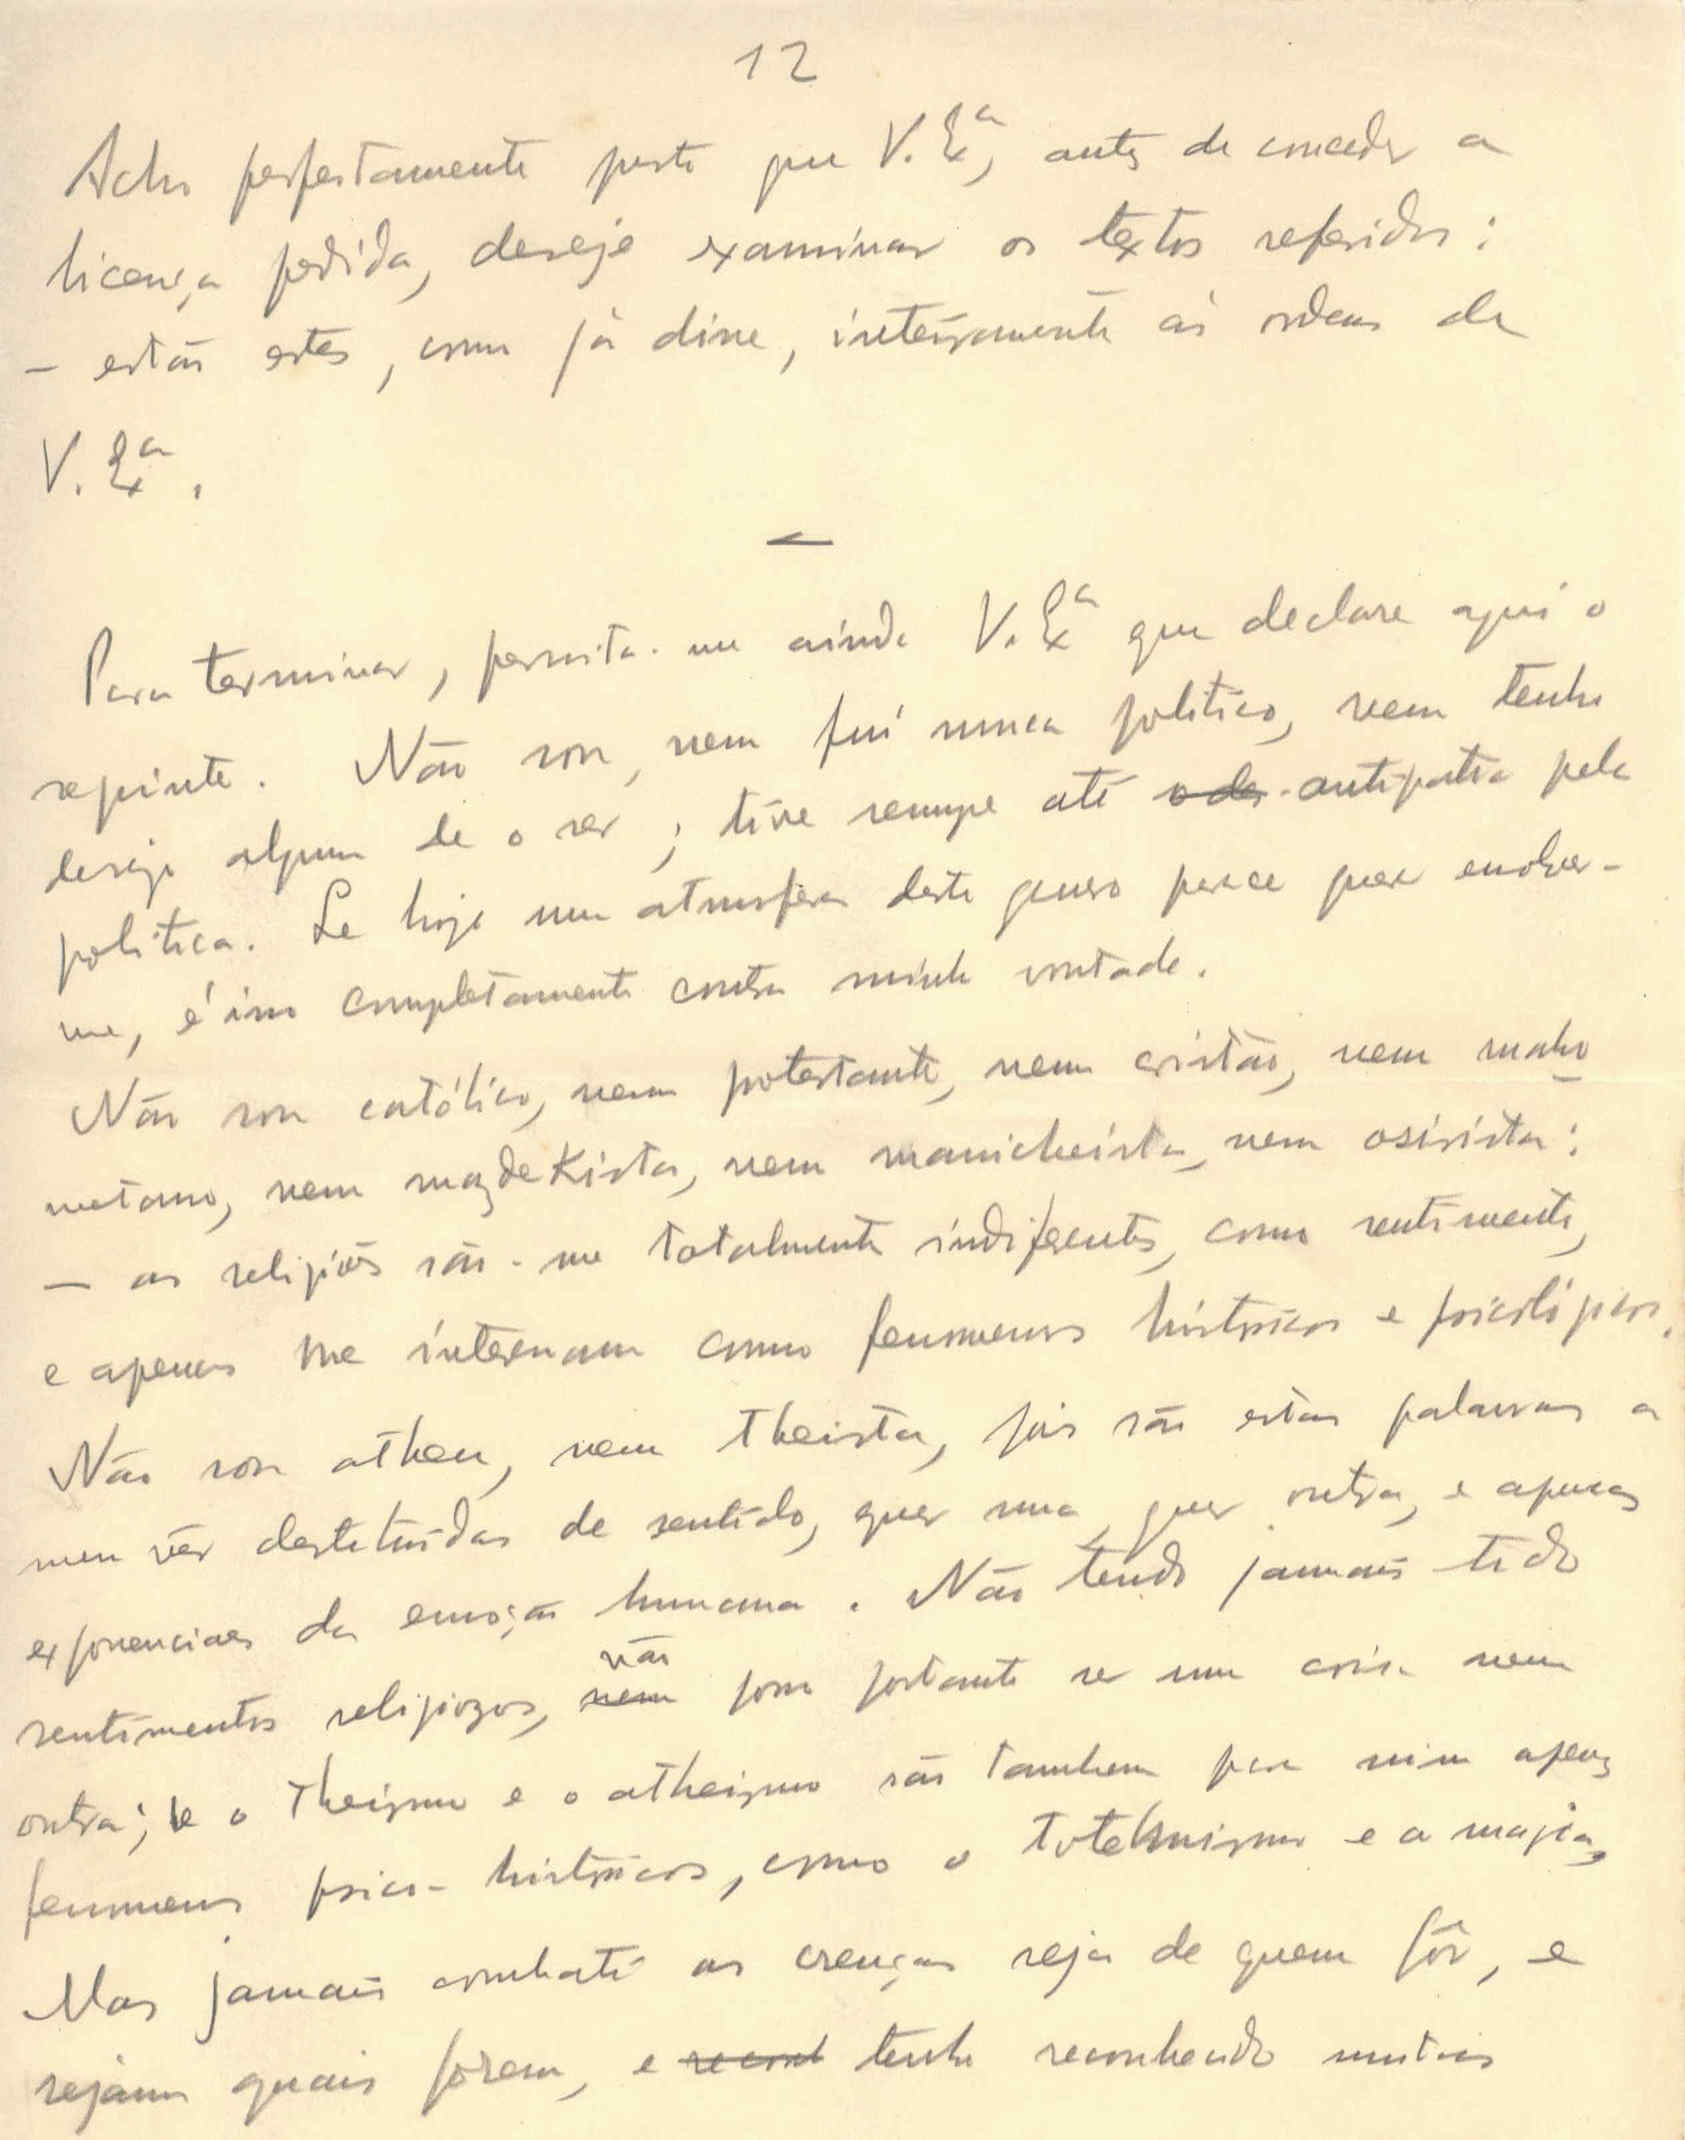 12
Acho perfeitamente justo que V. Exª, antes de conceder a
licença pedida, deseje examinar os textos referidos:
— estão estes, como já disse, inteiramente ás ordens de
V. Exª.
Para terminar, permita-me ainda V. Exª que declare aqui o
seguinte. Não sou, nem fui nunca politico, nem tenho
desejo algum de o ser; tive sempre até o des- antipatia pela
politica. Se hoje uma atmosfera deste genero parece querer envolver-
me, é isso completamente contra minha vontade.
Não sou católico, nem protestante, nem cristão, nem maho-
metano, nem mazdekista, nem manicheista, nem osirista:
— as religiões são-me totalmente indiferentes, como sentimento,
e apenas me interessam como fenomenos históricos e psicológicos.
Não sou atheu, nem theista, pois são estas palavras a
meu vêr destituidas de sentido, quer uma, quer outra, e apenas
exponenciaes da emoção humana. Não tendo jamais tido
não
sentimentos religiozos, nem posso portanto ser uma coisa nem
outra; e o theismo e o atheismo são tambem para mim apenas
fenomenos psico-históricos, como o totemismo e a magia,
Mas jamais combati as crenças seja de quem fôr, e
sejam quais forem, e reconh tenho reconhecido muitas